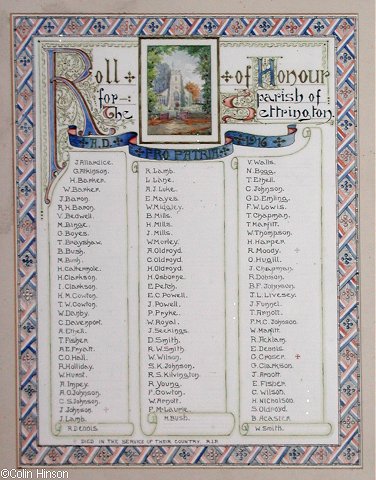 Roll of Honour
for The parish of Settrington
A.D. PRO PATRIA 1916
J. Allardice.
G. Atkinson.
H. Barker
W. Barker
J. Baron.
R. H. Baron.
V. Bedwell
M. Binge.
G. Boyes
T. Brayshaw
B. Bush.
M. Bush.
H. Cattermole.
H. Clarkson.
I. Clarkson.
H. M. Cowton.
T. W. Cowton.
W. Danby.
C. Davenport.
A. Ethell.
T. Fisher
A. E. Fryatt.
C. O. Hall.
R. Holliday.
W. Hurst.
A. Impey
A. O. Johnson.
C. S. Johnson.
J. Johnson
J. Lamb.
R. Dennis.
R. Lamb.
L. Lane.
A. J. Luke.
E. Mayes
W. Midgley.
B. Mills
H. Mills.
J. Mills.
W. Morley.
A. Oldroyd.
C. Oldroyd.
H. Oldroyd
H. Osborne.
E. Petch.
E. C. Powell.
J. Powell.
P. Pryke.
W. Royal.
J. Seekings.
D. Smith.
R. W. Smith.
W. Wilson.
S. K. Johnson.
R. S. Kilvington.
R. Young.
F. Gowton.
W. Arnott.
P. McLaurie
H. Bush.
V. Walls.
N. Bogg.
T. Ethell.
C. Johnson.
G. D. Emling.
F. W. Lowis.
T. Chapman.
T. Marfitt.
W. Thompson.
H. Harper
R. Moody.
O. Hugill.
J. Chapman.
R. Dobson.
B. F. Johnson.
J. L. Livesey.
J. Funnel.
T. Arnott.
P. M. C. Johnson
W. Marfitt.
R. Acklam.
E. Dennis.
G. Croser
G. Clarkson.
J. Arnott
E. Fisher
C. Wilson.
H. Nicholson.
S. Oldroyd.
B. Acaster
W. Smith
DIED IN THE SERVICE OF THEIR COUNTRY R.I.P.
©Colin Hinson